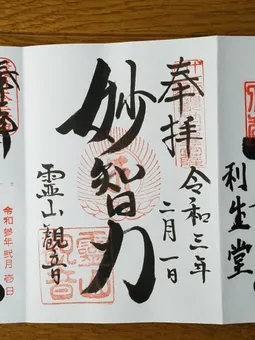 奉拝
令和三年
二月一日
妙智力
霊山観音
利生堂
奉拝
令和参年 弐月 壱日